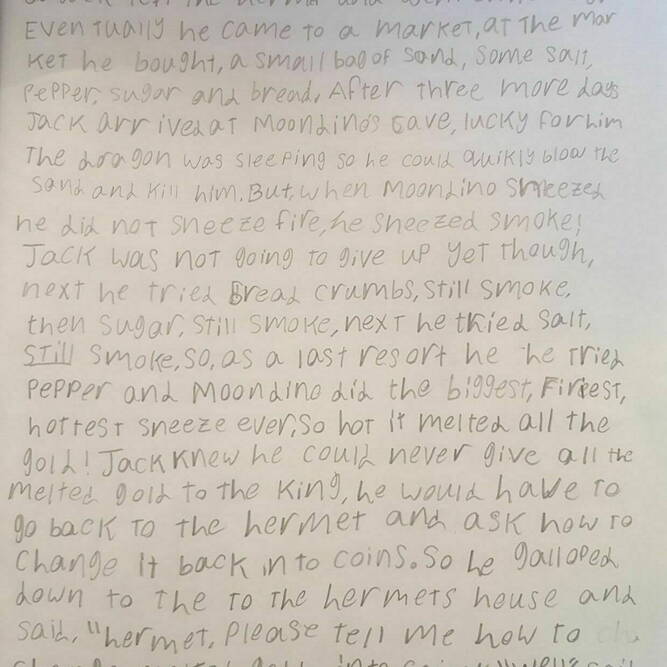 Eventually he came to a market, at the mar
ket he bought, a small bag of sand, some salt,
Pepper, sugar and bread. After three more days
Jack arrived at Moondino's cave, lucky for him
The dragon was sleeping so he could quikly blow the
sand and kill him. But, when Moondino sneezed
he did not sneeze fire, he sneezed smoke!
Jack was not going to give up yet though,
next he tried Bread crumbs, still smoke,
then sugar, still smoke, next he tried salt,
STill smoke, so, as a last resort he he tried
Pepper and Moondino did the biggest, Firiest,
hottest sneeze ever, So hot it melted all the
gold! Jack knew he could never give all the
melted gold to the King, he would have to
go back to the hermet and ask how to
change it back into coins. So he galloped
down to the to the hermets house and
said, "hermet, Please tell me how to